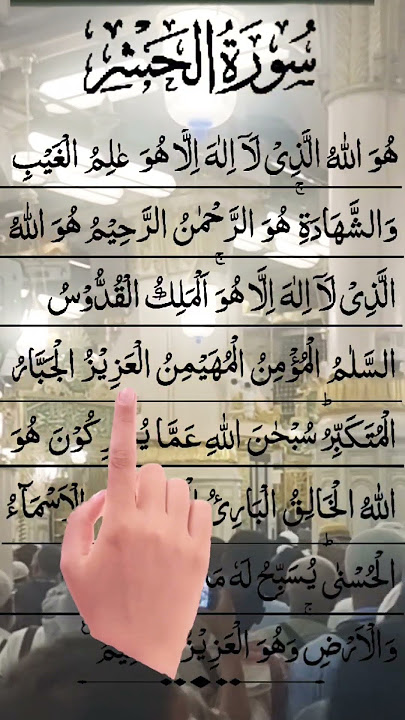 سُورَةُ الْحَشْرِ
هُوَ اللّٰهُ الَّذِیْ لَاۤ اِلٰهَ اِلَّا هُوَ عٰلِمُ الْغَیْبِ
وَالشَّهَادَةِ هُوَ الرَّحْمٰنُ الرَّحِیْمُ هُوَ اللّٰهُ
الَّذِیْ لَاۤ اِلٰهَ اِلَّا هُوَ اَلْمَلِكُ الْقُدُّوْسُ
السَّلٰمُ الْمُؤْمِنُ الْمُهَیْمِنُ الْعَزِیْزُ الْجَبَّارُ
الْمُتَكَبِّرُ سُبْحٰنَ اللّٰهِ عَمَّا هُوَ
اللّٰهُ الْخَالِقُ الْبَارِئُ الْاَسْمَآءُ
الْحُسْنٰی یُسَبِّحُ لَهٗ
وَالْاَرْضِ وَهُوَ الْعَزِیْزُ